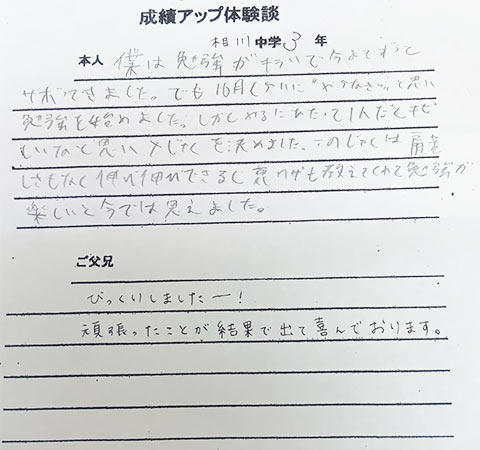 成績アップ体験談
相川中学3年
本人 僕は勉強がキライで今までずっと
サボってきました。でも10月くらいに"やらなきゃ"と思い
勉強を始めました。しかしやるにあたって1人だと
もいなと思い メじゅくを決めました。このじゅくは
しさもなく伸び伸びできるし裏ワザも教えてくれて勉強が
楽しいと今では思えました。
ご父兄
びっくりしましたー!
頑張ったことが結果で出て喜んでおります。